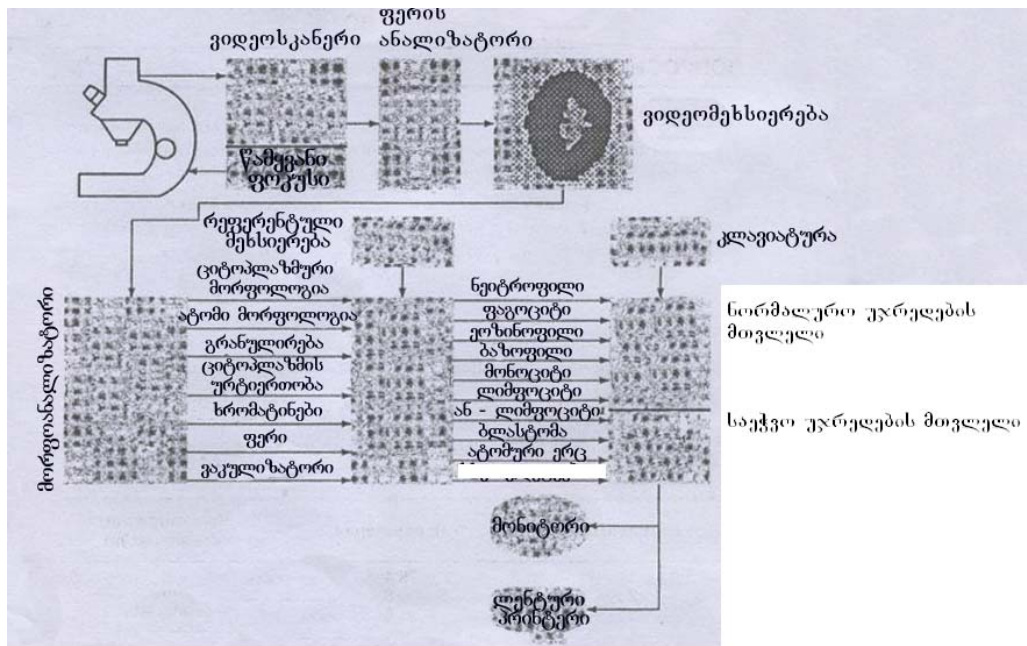 ვიდეოსკანერი
ფერის
ანალიზატორი
ვიდეომეხსიერება
წამყვანი
ფოკუსი
რეფერენტული
მეხსიერება
კლავიატურა
მორფოანალიზატორი
ციტოპლაზმური
მორფოლოგია
ატომი მორფოლოგია
გრანულირება
ციტოპლაზმის
ურტიერთობა
ხრომატინები
ფერი
ვაკულიზატორი
ნეიტროფილი
ფაგოციტი
ეოზინოფილი
ბაზოფილი
მონოციტი
ლიმფოციტი
ან - ლიმფოციტი
ბლასტომა
ატომური ერც
ნორმალურო უჯრედების
მთვლელი
საეჭვო უჯრედების მთვლელი
მონიტორი
ლენტური
პრინტერი